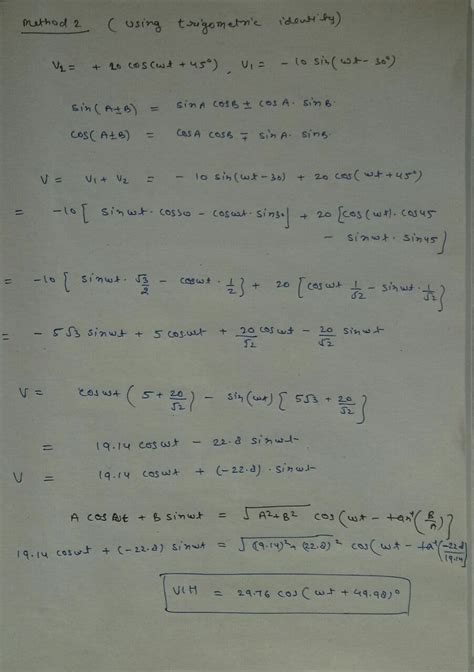 Method 2 ( using trigometric identity)
V₂ = + 20 cos(wt + 45°) , V₁ = - 10 sin(wt - 30°)
sin(A±B) = sinA cosB ± cosA. sinB.
cos(A±B) = cosA cosB ∓ sinA. sinB.
V = V₁ + V₂ = - 10 sin(wt - 30) + 20 cos(wt + 45°)
= -10[ sinwt. cos30 - coswt. sin30] + 20 [cos(wt). cos45
- sinwt. sin45]
= -10 { sinwt. √3/2 - coswt. 1/2 } + 20 [coswt 1/√2 - sinwt. 1/√2 }
= - 5√3 sinwt + 5 coswt + 20/√2 coswt - 20/√2 sinwt
V = coswt ( 5 + 20/√2 ) - sin(wt) { 5√3 + 20/√2 }
= 19.14 coswt - 22.8 sinwt
V = 19.14 coswt + (-22.8) . sinwt
A cos wt + B sinwt = √A²+B² cos(wt - tan⁻¹(B/A)}
19.14 coswt + (-22.8) sinwt = √(19.14)²+(22.8)² cos(wt - tan⁻¹(-22.8/19.14)
V(t) = 29.76 cos(wt + 49.98)°